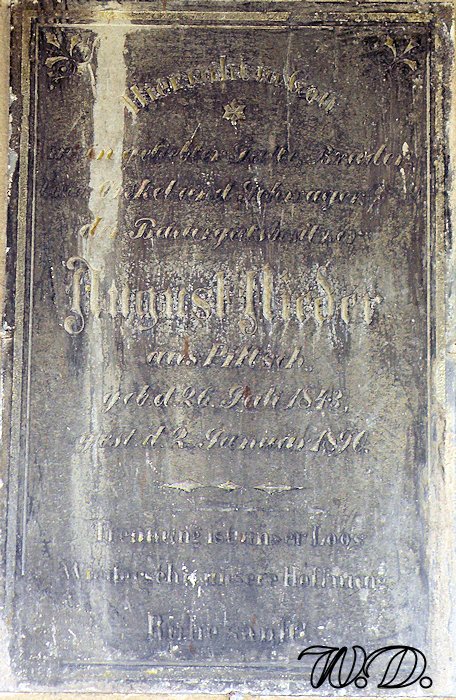 Hier ruht in Gott
geliebter Gatte, Bruder
Onkel und Schwager
Bauergutsbesitzer
August Nieder
aus Piltsch,
geb. d. 26. Juli 1843,
gest. d. 2. Januar 1890.
Trennung ist unser Loos
Wiedersehn unsere Hoffnung
Ruhe sanft!
W.D.